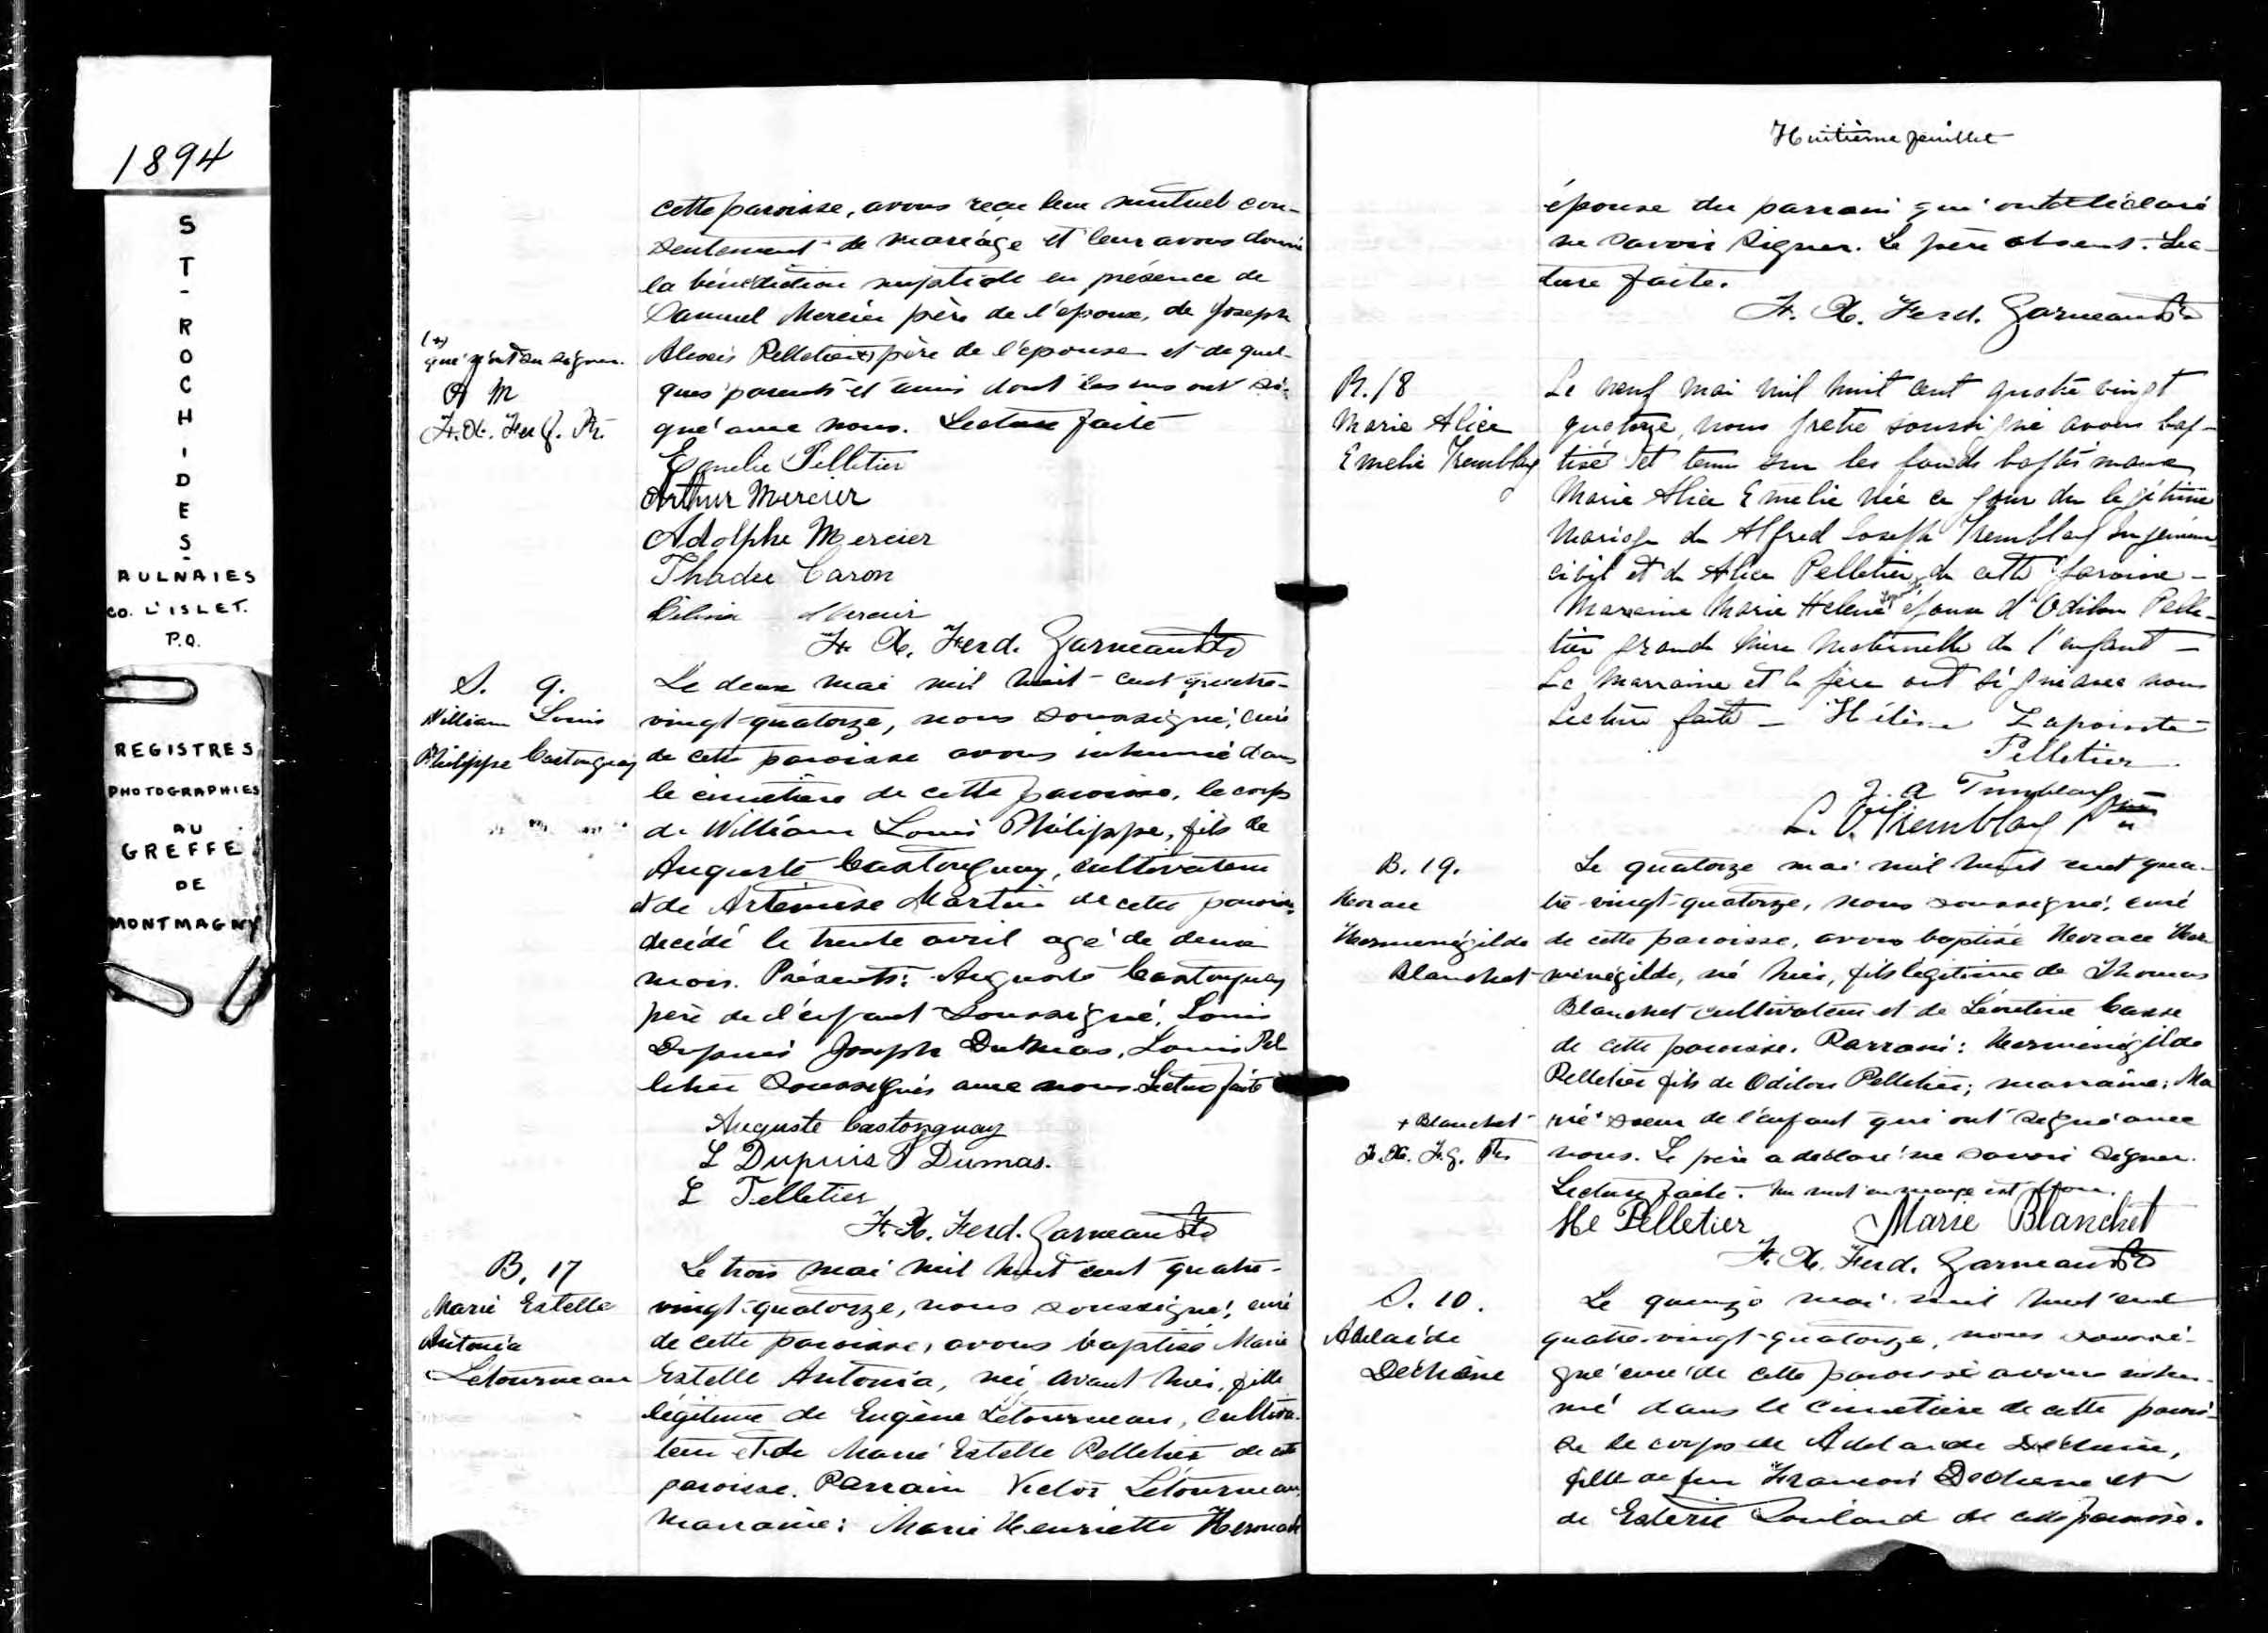 1894
ST-ROCH-DES-
AULNAIES
CO. L'ISLET.
P.Q.
REGISTRES
PHOTOGRAPHIES
AU
GREFFE
DE
MONTMAGNY
cette paroisse, avons reçu leur mutuel con-
sentement de mariage et leur avons donné
la bénédiction nuptiale en présence de
Samuel Mercier père de l'époux, de Joseph
(+)
qui n'ont su signer.
A M
F.X. Fer G. Ptr.
Alexis Pelletier (+) père de l'épouse et de quel-
ques parents et amis dont les uns ont si-
gné avec nous. Lecture faite
Emelie Pelletier
Arthur Mercier
Adolphe Mercier
Thadée Caron
Mercier
F. X. Ferd. Garneau Ptr
S. 9.
William Louis
Philippe Castonguay
Le deux mai mil huit-cent quatre-
vingt-quatorze, nous soussigné, curé
de cette paroisse avons inhumé dans
le cimetière de cette paroisse, le corps
de William Louis Philippe, fils de
Auguste Castonguay, cultivateur
et de Artémise Martin de cette paroisse,
décédé le trente avril agé de deux
mois. Présents: Auguste Castonguay
père de l'enfant soussigné, Louis
Dupuis Joseph Dumas, Louis Pel
letier soussignés avec nous. Lecture faite
Auguste Castonguay
L Dupuis J Dumas.
L Pelletier
F. X. Ferd. Garneau Ptr
B. 17
Marie Estelle
Antonia
Létourneau
Le trois mai mil huit cent quatre-
vingt-quatorze, nous soussigné, curé
de cette paroisse, avons baptisé Marie
Estelle Antonia, née avant hier, fille
légitime de Eugène Létourneau, cultiva-
teur et de Marie Estelle Pelletier de cette
paroisse. Parrain Victor Létourneau
marraine: Marie Henriette
Huitième feuillet
épouse du parrain qui ont déclaré
ne savoir signer. Le père absent. Lec-
ture faite.
F. X. Ferd. Garneau Ptr
B. 18
Marie Alice
Emelie Tremblay
Le neuf mai mil huit cent quatre vingt
quatorze, nous pretre soussigné avons bap-
tisé et tenu sur les fonds baptismaux
Marie Alice Emelie née ce jour du légitime
mariage de Alfred Joseph Tremblay Ingénieur
civil et de Alice Pelletier de cette paroisse -
Marraine Marie Helene Lapointe épouse d'Odilon Pelle-
tier grande mère maternelle de l'enfant -
La marraine et le père ont signé avec nous
Lecture faite - Hélène Lapointe
Pelletier
J. A Tremblay
L. O. Tremblay Ptre
B. 19.
Horace
Herménégilde
Blanchet
Le quatorze mai mil huit cent qua-
tre-vingt-quatorze, nous soussigné, curé
de cette paroisse, avons baptisé Horace Her-
ménégilde, né hier, fils légitime de Thomas
Blanchet cultivateur et de Léontine Casse
de cette paroisse. Parrain: Herménégilde
Pelletier fils de Odilon Pelletier; marraine: Ma
+ Blanchet
F. X. F. G. Ptr
rie + soeur de l'enfant qui ont signé avec
nous. Le père a déclaré ne savoir signer.
Lecture faite. Un mot en marge est bon.
He Pelletier Marie Blanchet
F. X. Ferd. Garneau Ptr
S. 10.
Adelaïde
Dechêne
Le quinze mai mil huit cent
quatre-vingt-quatorze, nous soussi-
gné curé de cette paroisse avons inhu-
mé dans le cimetière de cette parois-
se le corps de Adelaide Dechêne,
fille de feu François Dechene et
de Esterie Soulard de cette paroisse.